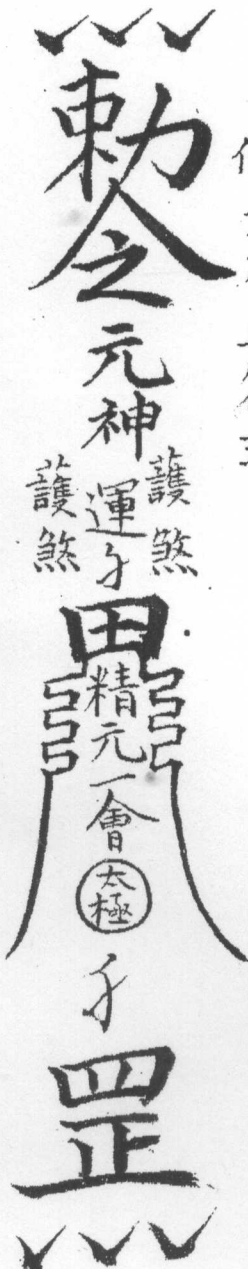 勅令
元神
蘐煞
運
蘐煞
田
精元一會
太極
罡